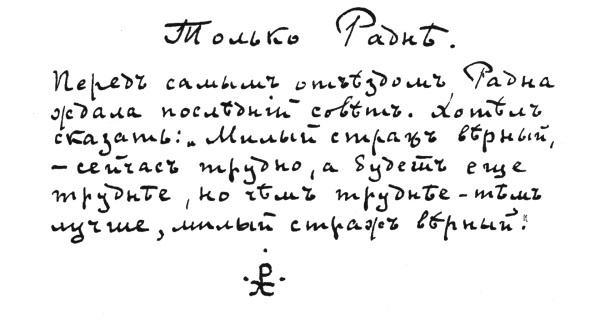 Только Раднѣ.
Передъ самымъ отъѣздомъ Радна
ждала послѣднiй совѣтъ. Хотѣлъ
сказать: „Милый стражъ вѣрный,
– сейчасъ трудно, а будетъ еще
труднѣе, но чѣмъ труднѣе – тѣмъ
лучше, милый стражъ вѣрный".